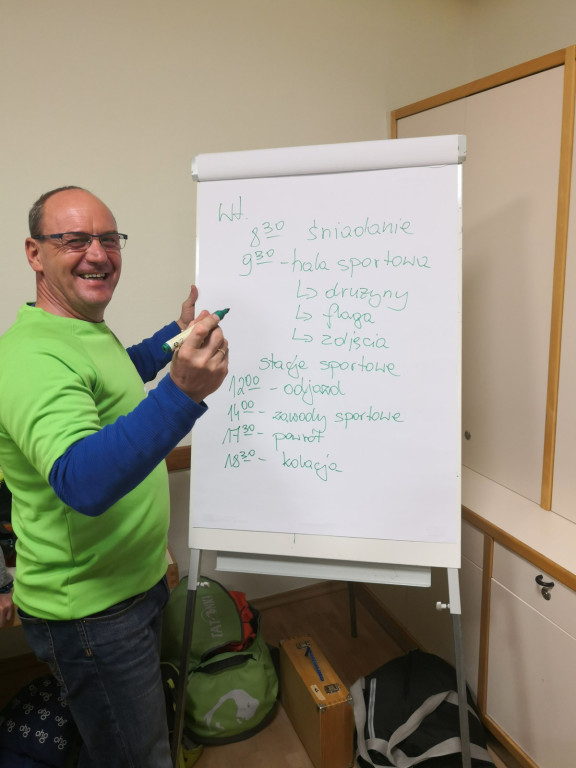 Wt.
8 30 śniadanie
9 30 - hala sportowa
↳ drużyny
↳ flaga
↳ zdjęcia
stacje sportowe
12 00 - odjazd
14 00 - zawody sportowe
17 30 - powrót
18 30 - kolacja